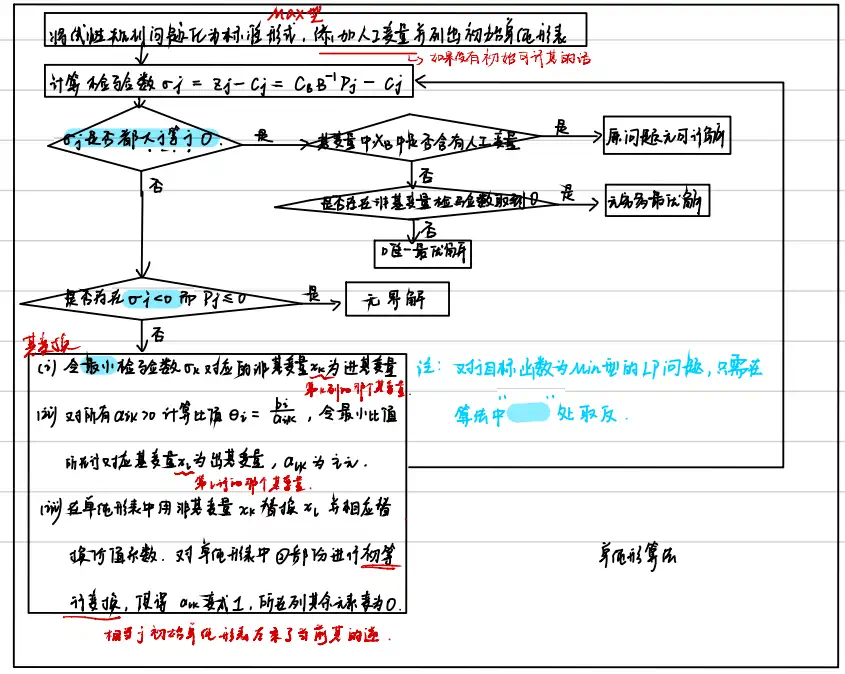 Max型
将线性规划问题化为标准形式，添加人工变量并列出初始单纯形表
↳ 如果没有初始可行基的话
计算检验数 σj = zj - Cj = CB B⁻¹ Pj - Cj
σj是否都大于等于0
是
基变量中XB中是否含有人工变量
是
原问题无可行解
否
否
是否存在非基变量检验数取到0
是
无穷多最优解
否
唯一最优解
是否存在 σj<0 而 Pj≤0
是
无界解
否
基变换
(i) 令最小检验数σk对应的非基变量xk为进基变量
第k列的那个基变量
注：对于目标函数为Min型的LP问题，只需在
算法中“ ”处取反.
(ii) 对所有aik>0 计算比值 θi = bi/aik ，令最小比值
所在行对应基变量xl为出基变量，alk为主元.
第l行的那个基变量.
(iii) 在单纯形表中用非基变量 xk 替换 xl 与相应替
换价值系数. 对单纯形表中②部分进行初等
行变换，使得 alk变成1，所在列其余元素变为0.
相当于初始单纯形表左乘了当前基的逆.
单纯形算法